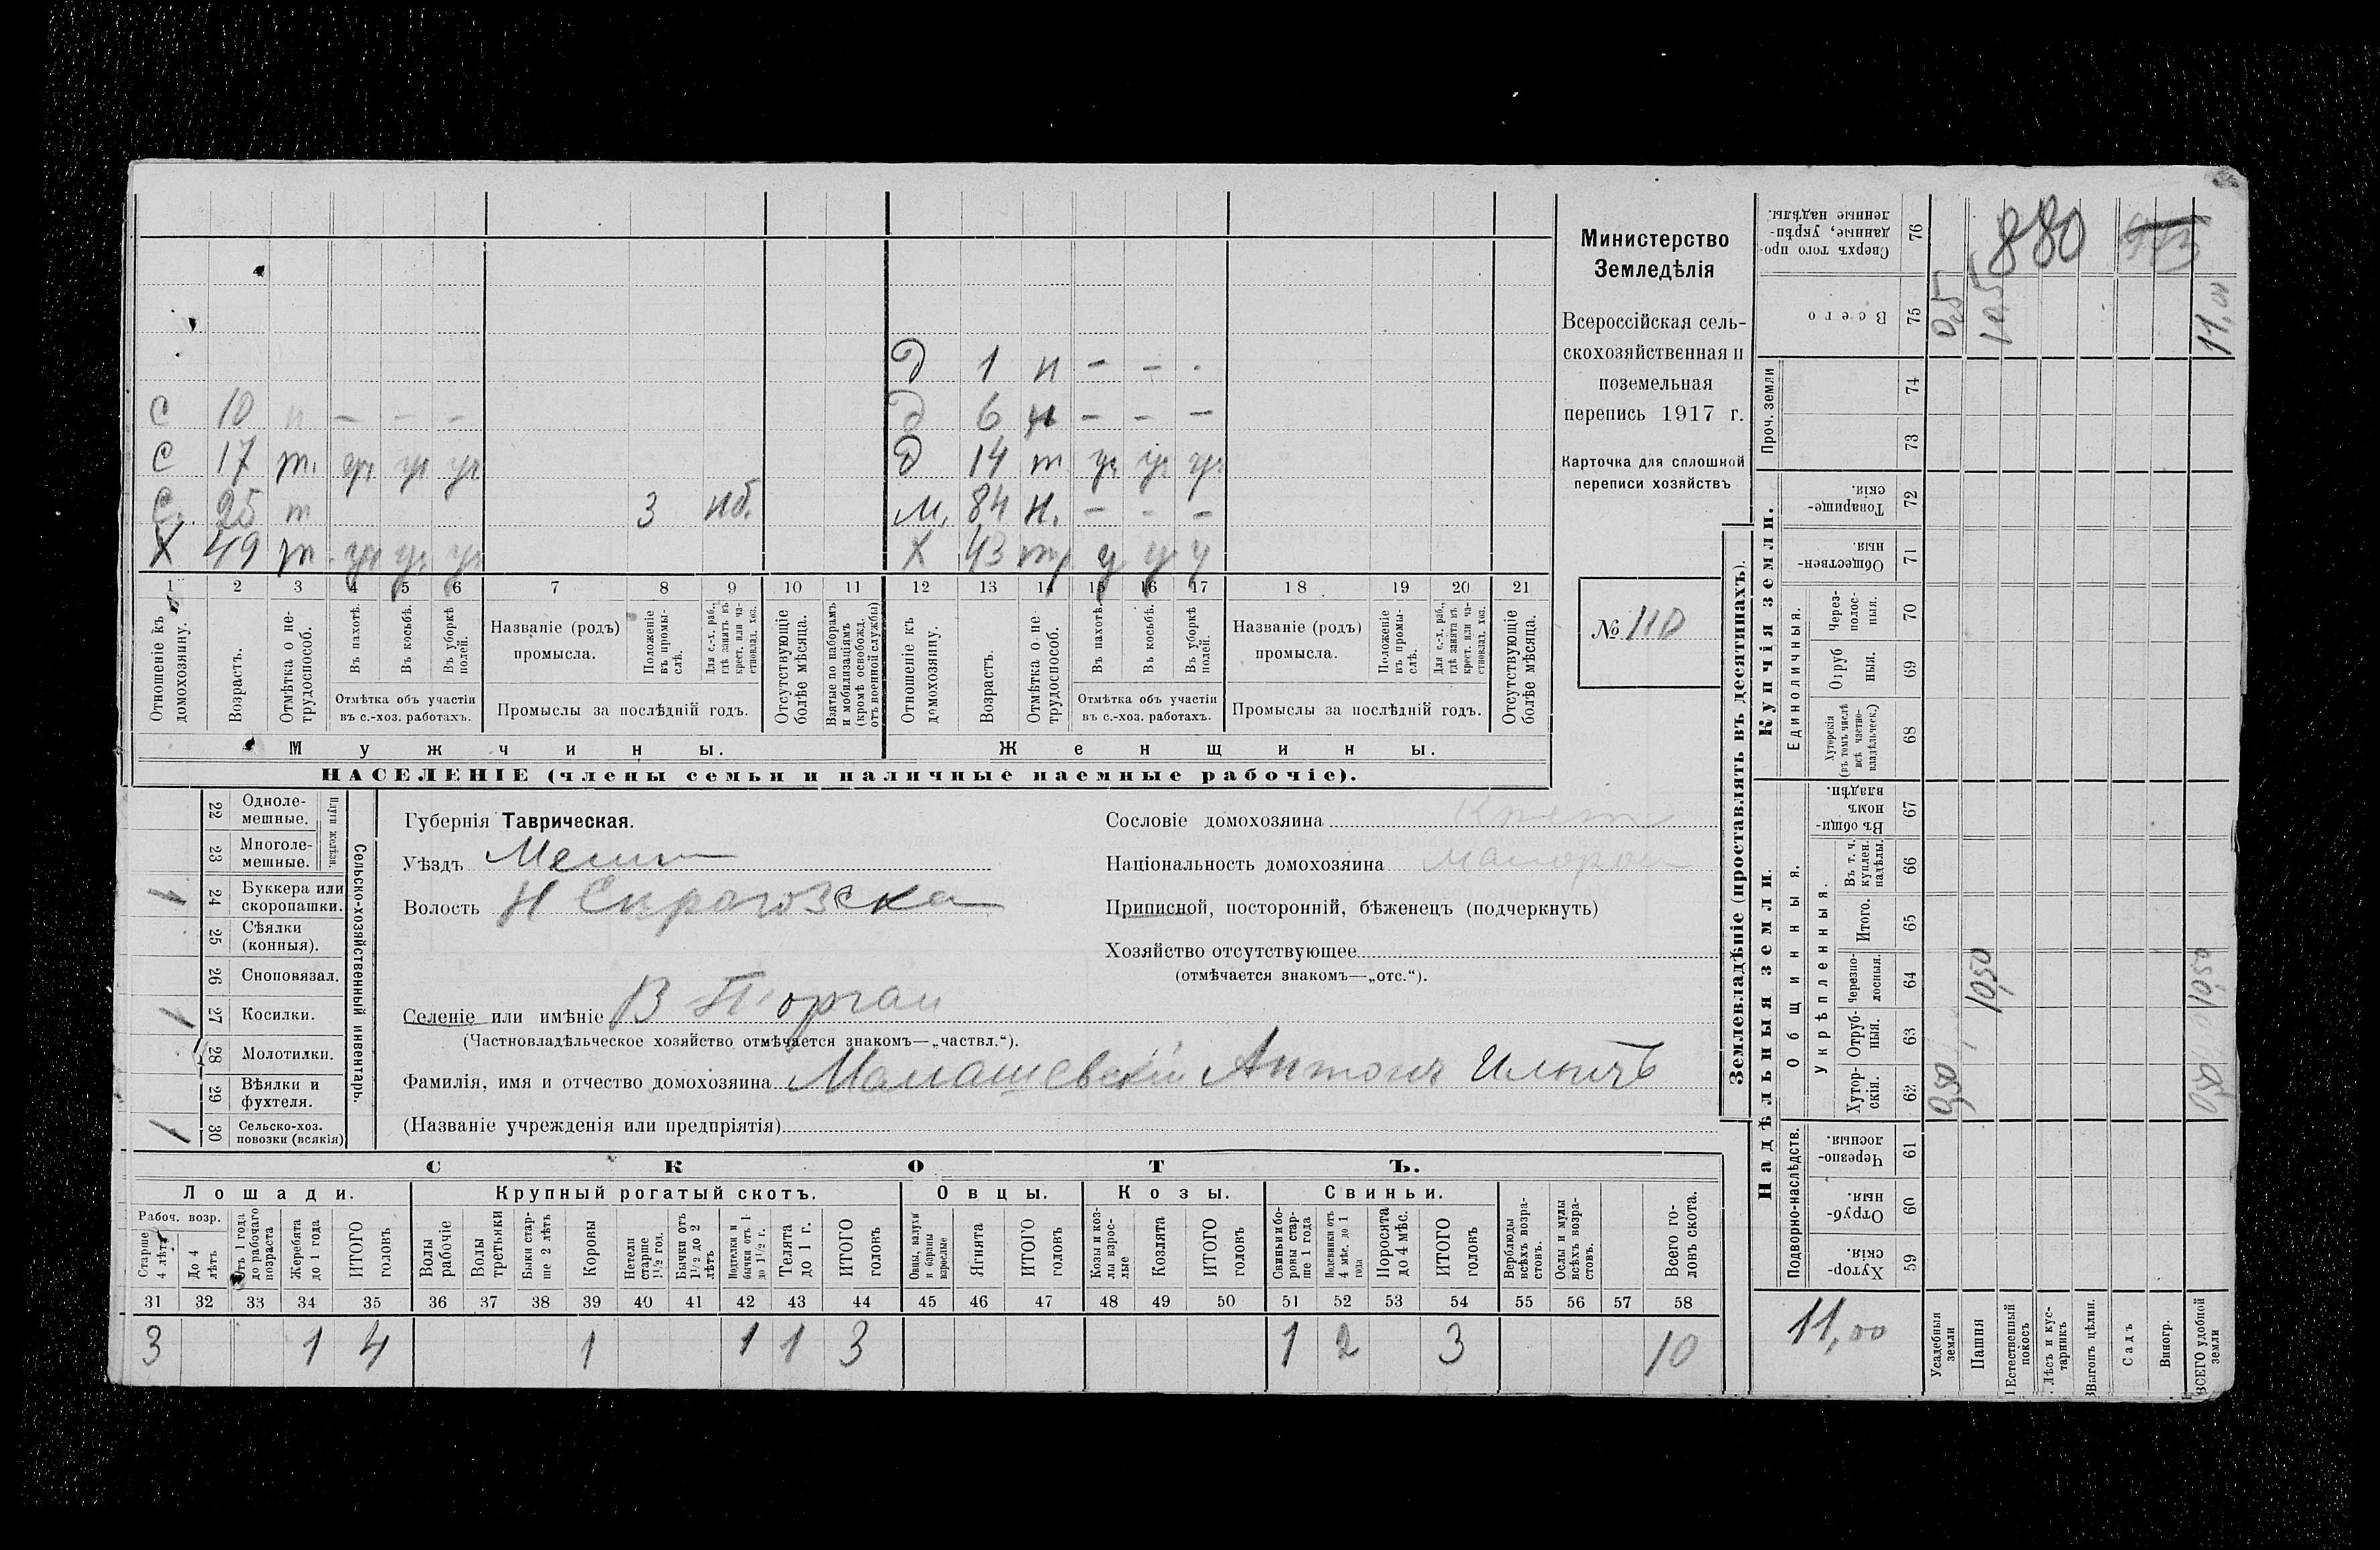 С 10 н — — —
С 17 т. уч уч уч
С. 25 т 3 нб.
Х 49 т. уч уч уч
Д 1 н — — -
Д 6 н — — —
Д 14 т уч уч уч
М. 84 н. — — —
Х 43 т у уч у
1 2 3 4 5 6 7 8 9 10 11 12 13 14 15 16 17 18 19 20 21
Отношеніе къ домохозяину.
Возрастъ.
Отмѣтка о не-трудоспособ.
Въ пахотѣ.
Въ косьбѣ.
Въ уборкѣ полей.
Отмѣтка объ участіи въ с.-хоз. работахъ.
Названіе (родъ) промысла.
Положеніе въ промы-слѣ.
Для с.-х. раб., гдѣ занятъ въ крест. или ча-стновлад. хоз.
Промыслы за послѣдній годъ.
Отсутствующіе болѣе мѣсяца.
Взятые по наборамъ и мобилизаціямъ (кромѣ освобожд. отъ военной службы)
Отношеніе къ домохозяину.
Возрастъ.
Отмѣтка о не-трудоспособ.
Въ пахотѣ.
Въ косьбѣ.
Въ уборкѣ полей.
Отмѣтка объ участіи въ с.-хоз. работахъ.
Названіе (родъ) промысла.
Положеніе въ промы-слѣ.
Для с.-х. раб., гдѣ занята въ крест. или ча-стновлад. хоз.
Промыслы за послѣдній годъ.
Отсутствующіе болѣе мѣсяца.
Мужчины.
Женщины.
НАСЕЛЕНІЕ (члены семьи и наличные наемные рабочіе).
Министерство
Земледѣлія
Всероссійская сель-
скохозяйственная и
поземельная
перепись 1917 г.
Карточка для сплошной
переписи хозяйствъ
№ 110
Сельско-хозяйственный инвентарь.
Плуги желѣзн.
22 Одноле-мешные.
23 Многоле-мешные.
1 24 Буккера или скоропашки.
25 Сѣялки (конныя).
26 Сноповязал.
1 27 Косилки.
28 Молотилки.
29 Вѣялки и фухтеля.
1 30 Сельско-хоз. повозки (всякія)
Губернія Таврическая.
Уѣздъ Мелит
Волость Н Сирогозска
Селеніе или имѣніе В Торгаи
(Частновладѣльческое хозяйство отмѣчается знакомъ—„частвл.“).
Фамилія, имя и отчество домохозяина Малашевскій Антонъ Ильичъ
(Названіе учрежденія или предпріятія)
Сословіе домохозяина Крест
Національность домохозяина малорос
Приписной, посторонній, бѣженецъ (подчеркнуть)
Хозяйство отсутствующее
(отмѣчается знакомъ—„отс.“).
СКОТЪ.
Лошади.
Крупный рогатый скотъ.
Овцы.
Козы.
Свиньи.
Рабоч. возр.
Старше 4 лѣтъ
До 4 лѣтъ
Отъ 1 года до рабочаго возраста
Жеребята до 1 года
ИТОГО головъ
Волы рабочіе
Волы третьяки
Быки стар-ше 2 лѣтъ
Коровы
Нетели старше 1½ год.
Бычки отъ 1½ до 2 лѣтъ
Подтелки и бычки отъ 1 до 1½ г.
Телята до 1 г.
ИТОГО головъ
Овцы, валухи и бараны взрослые
Ягнята
ИТОГО головъ
Козы и коз-лы взрос-лые
Козлята
ИТОГО головъ
Свиньи и бо-ровы стар-ше 1 года
Подсвинки отъ 4 мѣс. до 1 года
Поросята до 4 мѣс.
ИТОГО головъ
Верблюды всѣхъ возра-стовъ.
Ослы и мулы всѣхъ возра-стовъ.
Всего го-ловъ скота.
31 32 33 34 35 36 37 38 39 40 41 42 43 44 45 46 47 48 49 50 51 52 53 54 55 56 57 58
3 1 4 1 1 1 3 1 2 3 10
Землевладѣніе (проставлять въ десятинахъ).
Надѣльныя земли.
Купчія земли.
Проч. земли
Подворно-наслѣдств.
Общинныя.
Укрѣпленныя.
Единоличныя.
Сверхъ того про-данные, укрѣп-ленные надѣлы. 76
Всего 75
74
73
Товарище-скія. 72
Обществен-ныя. 71
Через-полос-ныя. 70
Отруб ныя. 69
Хуторскія (въ томъ числѣ всѣ частно-владѣльческ.) 68
Въ общи-номъ владѣн. 67
Въ т. ч. куплен. надѣлы. 66
Итого. 65
Черезпо-лосныя. 64
Отруб-ныя. 63
Хутор-скія. 62
Черезпо-лосныя. 61
Отруб-ныя. 60
Хутор-скія. 59
11,00
880
0,5
10,5
11,00
0,50
10,50
10,50
0,50
Усадебныя земли
Пашня
Естественный покосъ
Лѣсъ и кус-тарникъ
Выгонъ цѣлин.
Садъ
Виногр.
ВСЕГО удобной земли